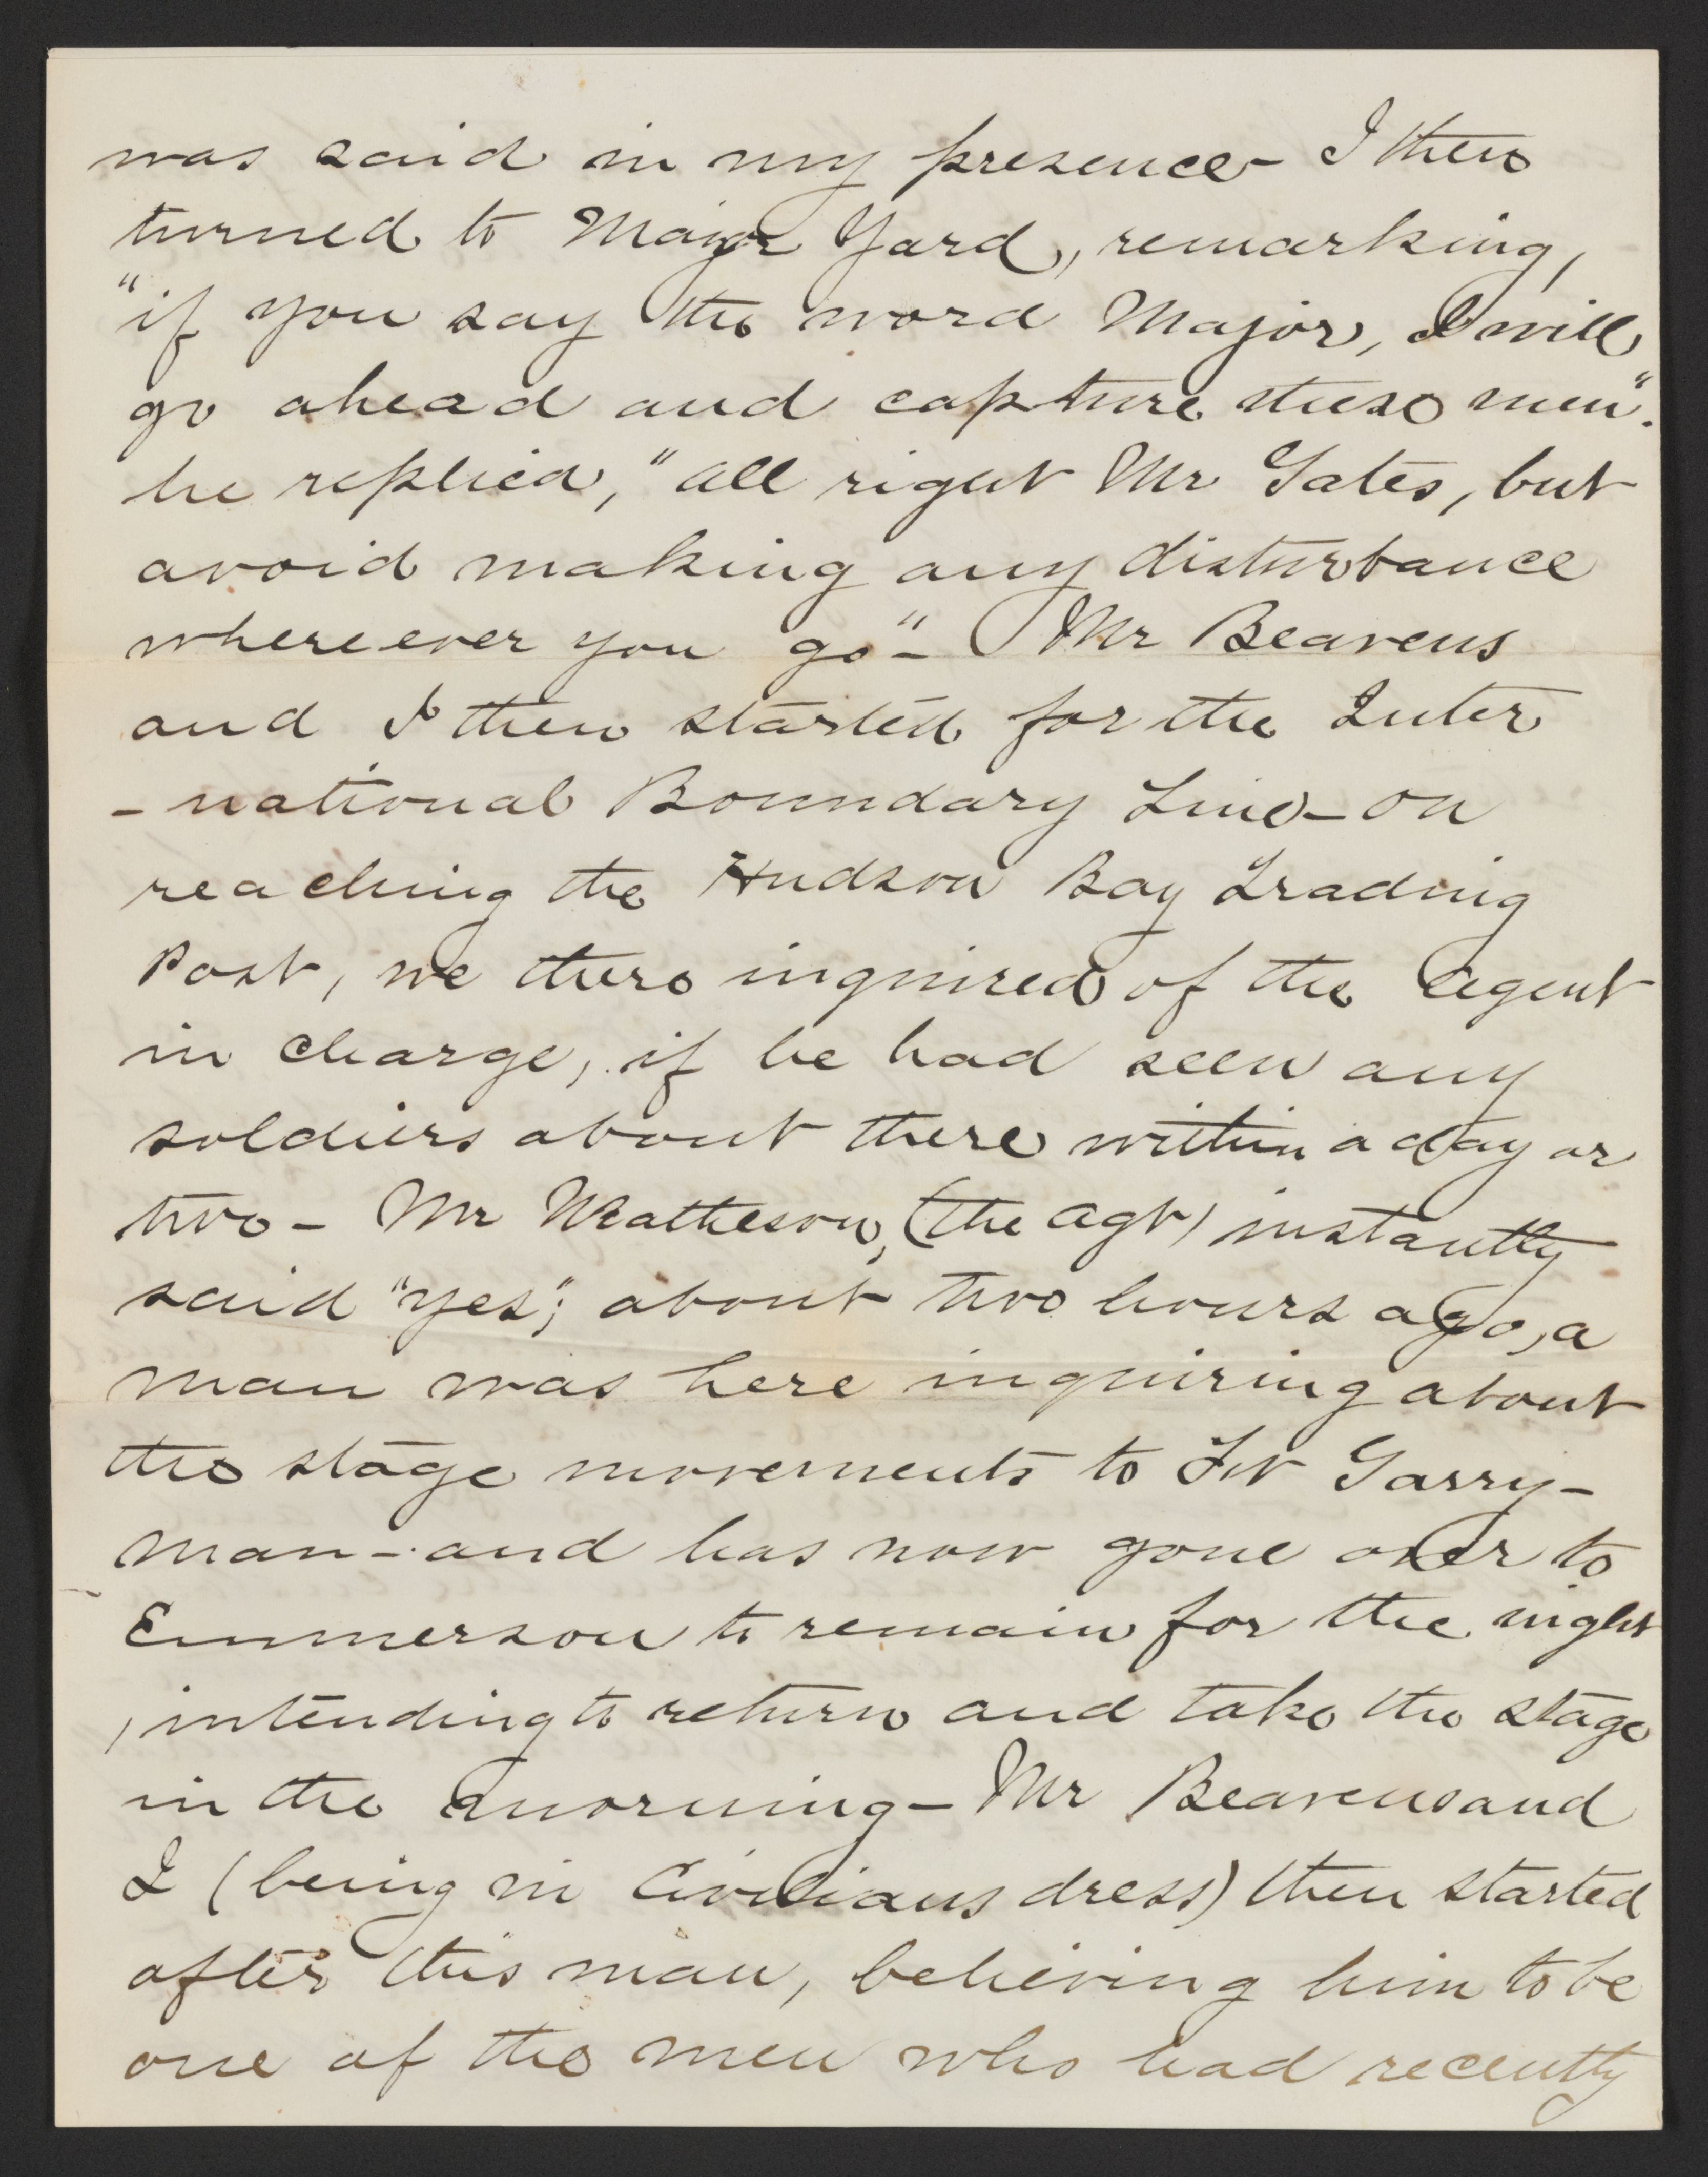 was said in my presence - I then
turned to Major Yard, remarking,
"if you say the word Major, I will
go ahead and capture these men".
he replied, "all right Mr Gates, but
avoid making any disturbance
where ever you go" - Mr Beavens
and I then started for the Inter
- national Boundary Line - on
reaching the Hudson Bay Trading
Post, we there inquired of the agent
in charge, if he had seen any
soldiers about there within a day or
two - Mr Matheson, (the agt) instantly
said "yes"; about two hours ago, a
man was here inquiring about
the stage movements to Ft Garry -
man - and has now gone over to
Emmerson to remain for the night
, intending to return and take the stage
in the morning - Mr Beavens and
I (being in Civilians dress) then started
after this man, believing him to be
one of the men who had recently